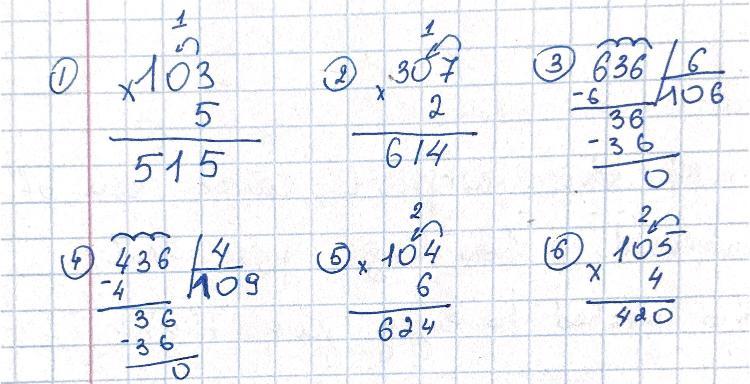 ① 1
× 103
5
515
② 1
× 307
2
614
③ 636 | 6
-6 | 106
36
-36
0
④ 436 | 4
-4 | 109
36
-36
0
⑤ 2
× 104
6
624
⑥ 2
× 105
4
420